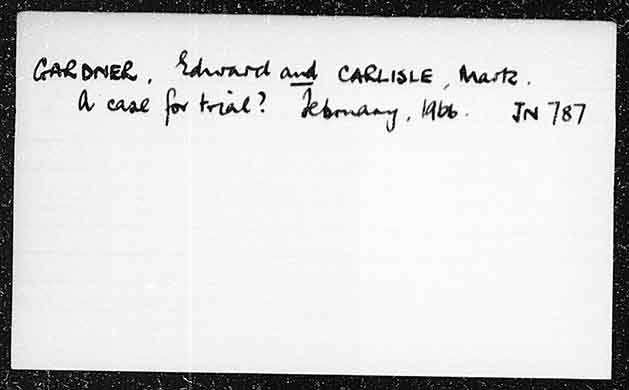 GARDNER, Edward and CARLISLE, Mark.
A case for trial? February, 1966. JN 787